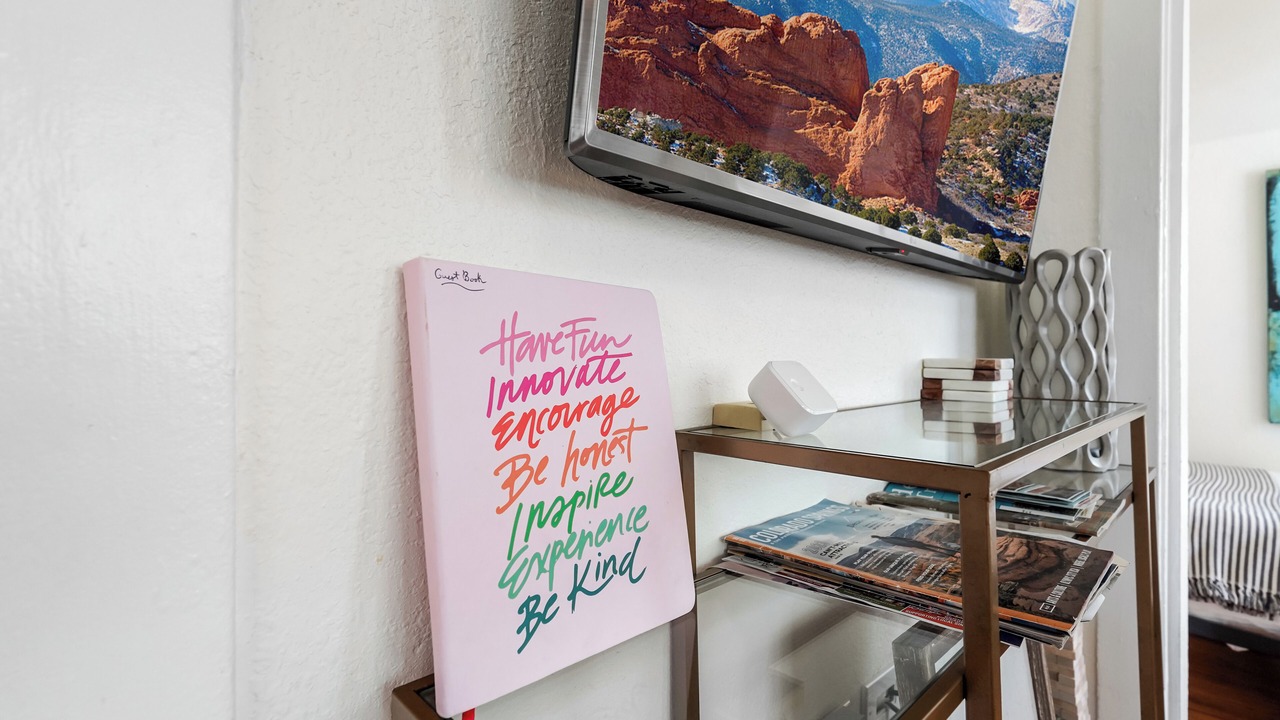 Guest Book
Have Fun
Innovate
Encourage
Be honest
Inspire
Experience
Be Kind